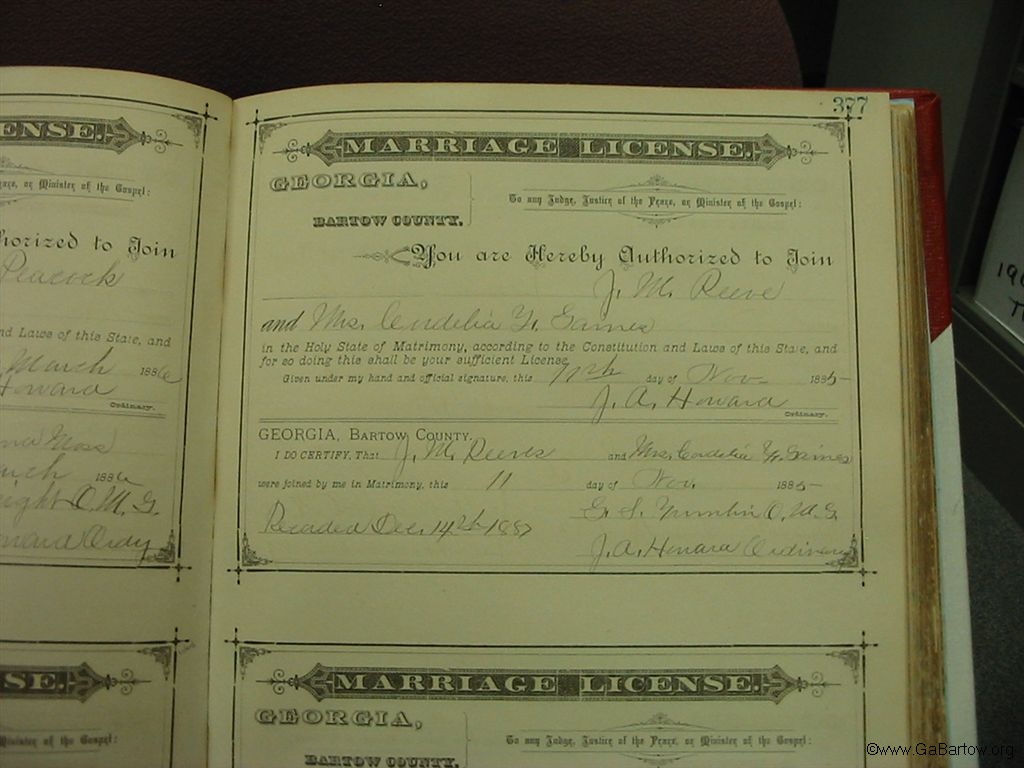 ENSE.
Peace, or Minister of the Gospel:
horized to Join
Peacock
nd Laws of this State, and
March 1886
Howard
Ordinary.
Moss
1886
O.M.G.
Ordy
SE.
Minister of the Gospel:
377
MARRIAGE LICENSE.
GEORGIA,
BARTOW COUNTY.
To any Judge, Justice of the Peace, or Minister of the Gospel:
You are Hereby Authorized to Join
J. M. Reeve
and Mrs. Cordelia Y. Gaines
in the Holy State of Matrimony, according to the Constitution and Laws of this State, and
for so doing this shall be your sufficient License.
Given under my hand and official signature, this 11th day of Nov 1885
J. A. Howard
Ordinary.
GEORGIA, BARTOW COUNTY.
I DO CERTIFY, That J. M. Reeves and Mrs. Cordelia Y. Gaines
were joined by me in Matrimony, this 11 day of Nov. 1885
G. S. Tumlin O.M.G.
Recorded Dec. 14th 1887
J. A. Howard Ordinary
MARRIAGE LICENSE.
GEORGIA,
BARTOW COUNTY.
To any Judge, Justice of the Peace, or Minister of the Gospel:
©www.GaBartow.org